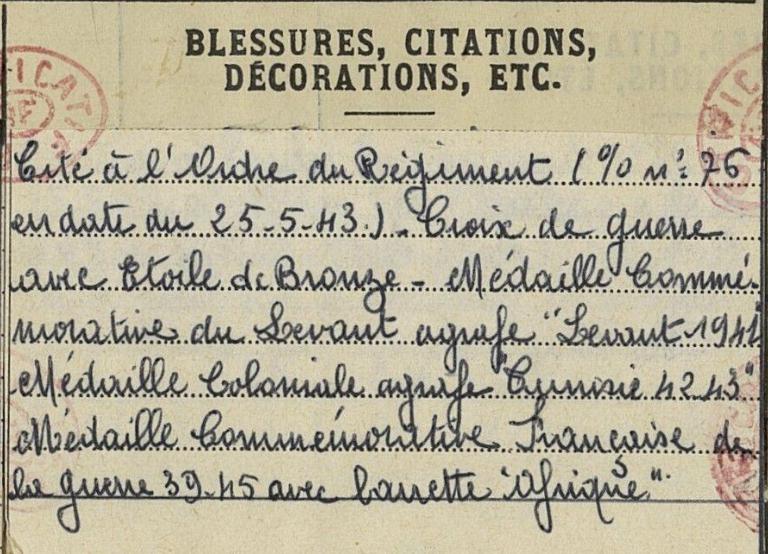 BLESSURES, CITATIONS,
DÉCORATIONS, ETC.
Cité à l'Ordre du Régiment (% n°: 76
en date du 25-5-43). Croix de guerre
avec Etoile de Bronze - Médaille Commé-
morative du Levant agrafe "Levant 1941"
Médaille Coloniale agrafe "Tunisie 42.43"
Médaille Commémorative Française de
la guerre 39-45 avec barrette "Afrique".